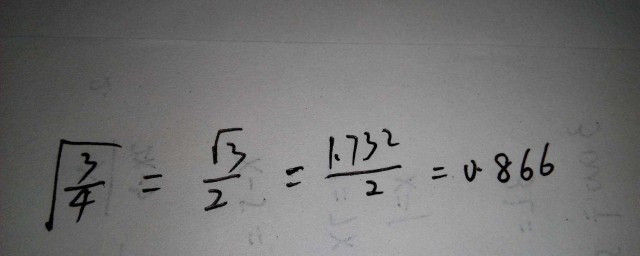 √(3/4) = √3/2 = 1.732/2 = 0.866